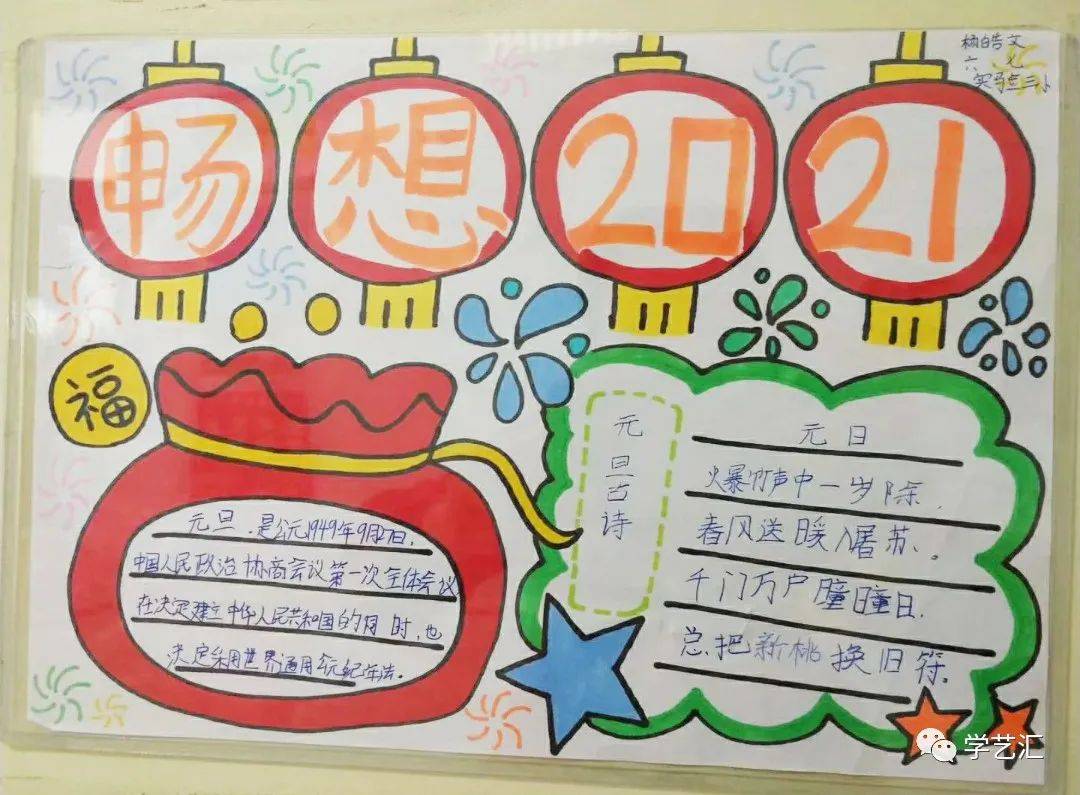 畅想2021
杨皓文
六
实验三小
福
元旦.是公元1949年9月27,
中国人民政治协商会议第一次全体会议
在决定建立中华人民共和国的同时,也
决定采用世界通用公元纪年法。
元旦古诗
元日
爆竹声中一岁除.
春风送暖入屠苏、.
千门万户曈曈日.
总把新桃换旧符.
学艺汇